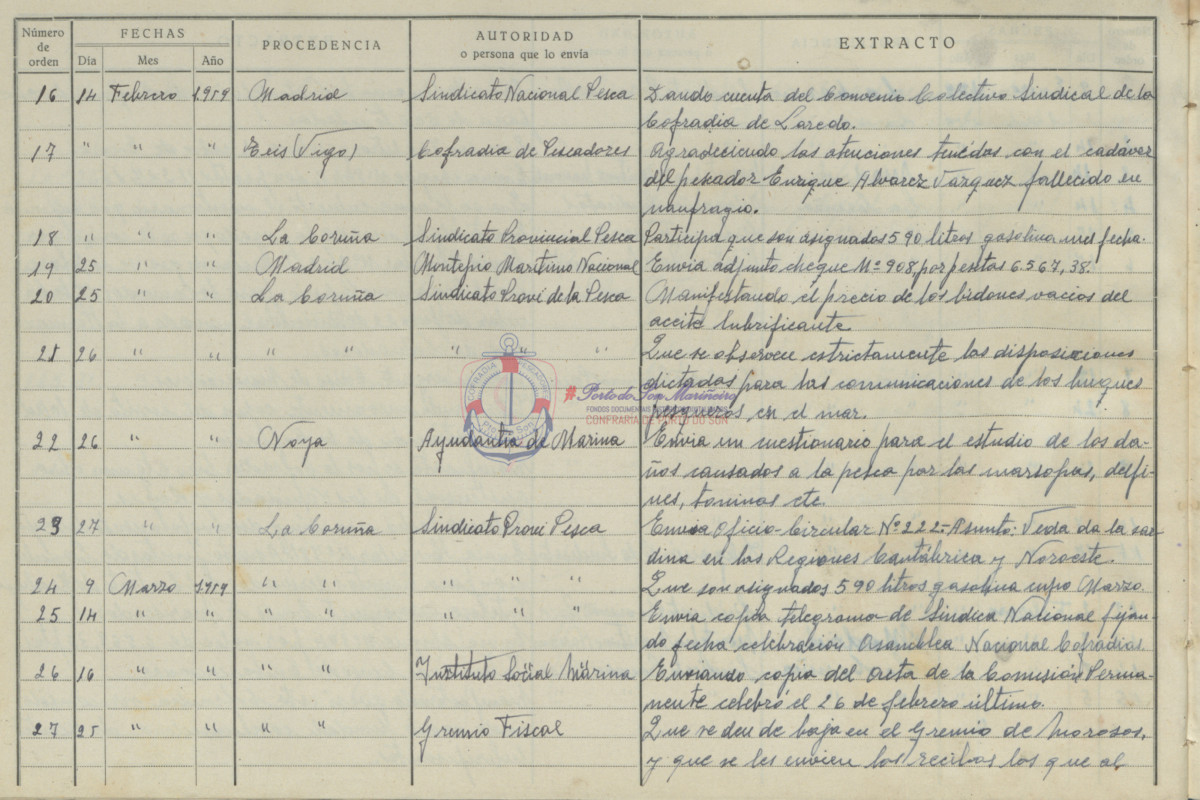 Número de orden FECHAS PROCEDENCIA AUTORIDAD o persona que lo envía EXTRACTO
Día Mes Año
16 14 Febrero 1959 Madrid Sindicato Nacional Pesca Dando cuenta del Convenio Colectivo Sindical de la
Cofradia de Laredo.
17 " " " Teis (Vigo) Cofradia de Pescadores Agradeciendo las atenciones tenidas con el cadáver
del pescador Enrique Alvarez Vazquez fallecido en
naufragio.
18 " " " La Coruña Sindicato Provincial Pesca Participa que son asignados 590 litros gasolina mes fecha.
19 25 " " Madrid Montepio Maritimo Nacional Envia adjunto cheque Nº 908, por pesetas 6.567,38.
20 25 " " La Coruña Sindicato Provi de la Pesca Manifestando el precio de los bidones vacios del
aceite lubrificante
21 26 " " " " " " Que se observen estrictamente las disposiciones
dictadas para las comunicaciones de los buques
pesqueros en el mar.
COFRADIA PESCADORES
#Porto do Son Mariñeiro
FONDOS DOCUMENTAIS
CONFRARIA DE PORTO DO SON
22 26 " " Noya Ayudantia de Marina Envia un cuestionario para el estudio de los da-
ños causados a la pesca por las marsopas, delfi-
nes, toninas etc.
23 27 " " La Coruña Sindicato Provi Pesca Envia Oficio-Circular Nº 222.- Asunto: Veda da la sar-
dina en las Regiones Cantábrica y Noroeste.
24 9 Marzo 1959 " " " " " Que son asignados 590 litros gasolina cupo Marzo.
25 14 " " " " " " " Envia copia telegrama de Sindica Nacional fijan-
do fecha celebración Asamblea Nacional Cofradias.
26 16 " " " " Instituto Social Marina Enviando copia del acta de la Comisión Perma-
nente celebró el 26 de febrero último.
27 25 " " " " Gremio Fiscal Que se den de baja en el Gremio de Morosos,
y que se les envien los recibos los que al